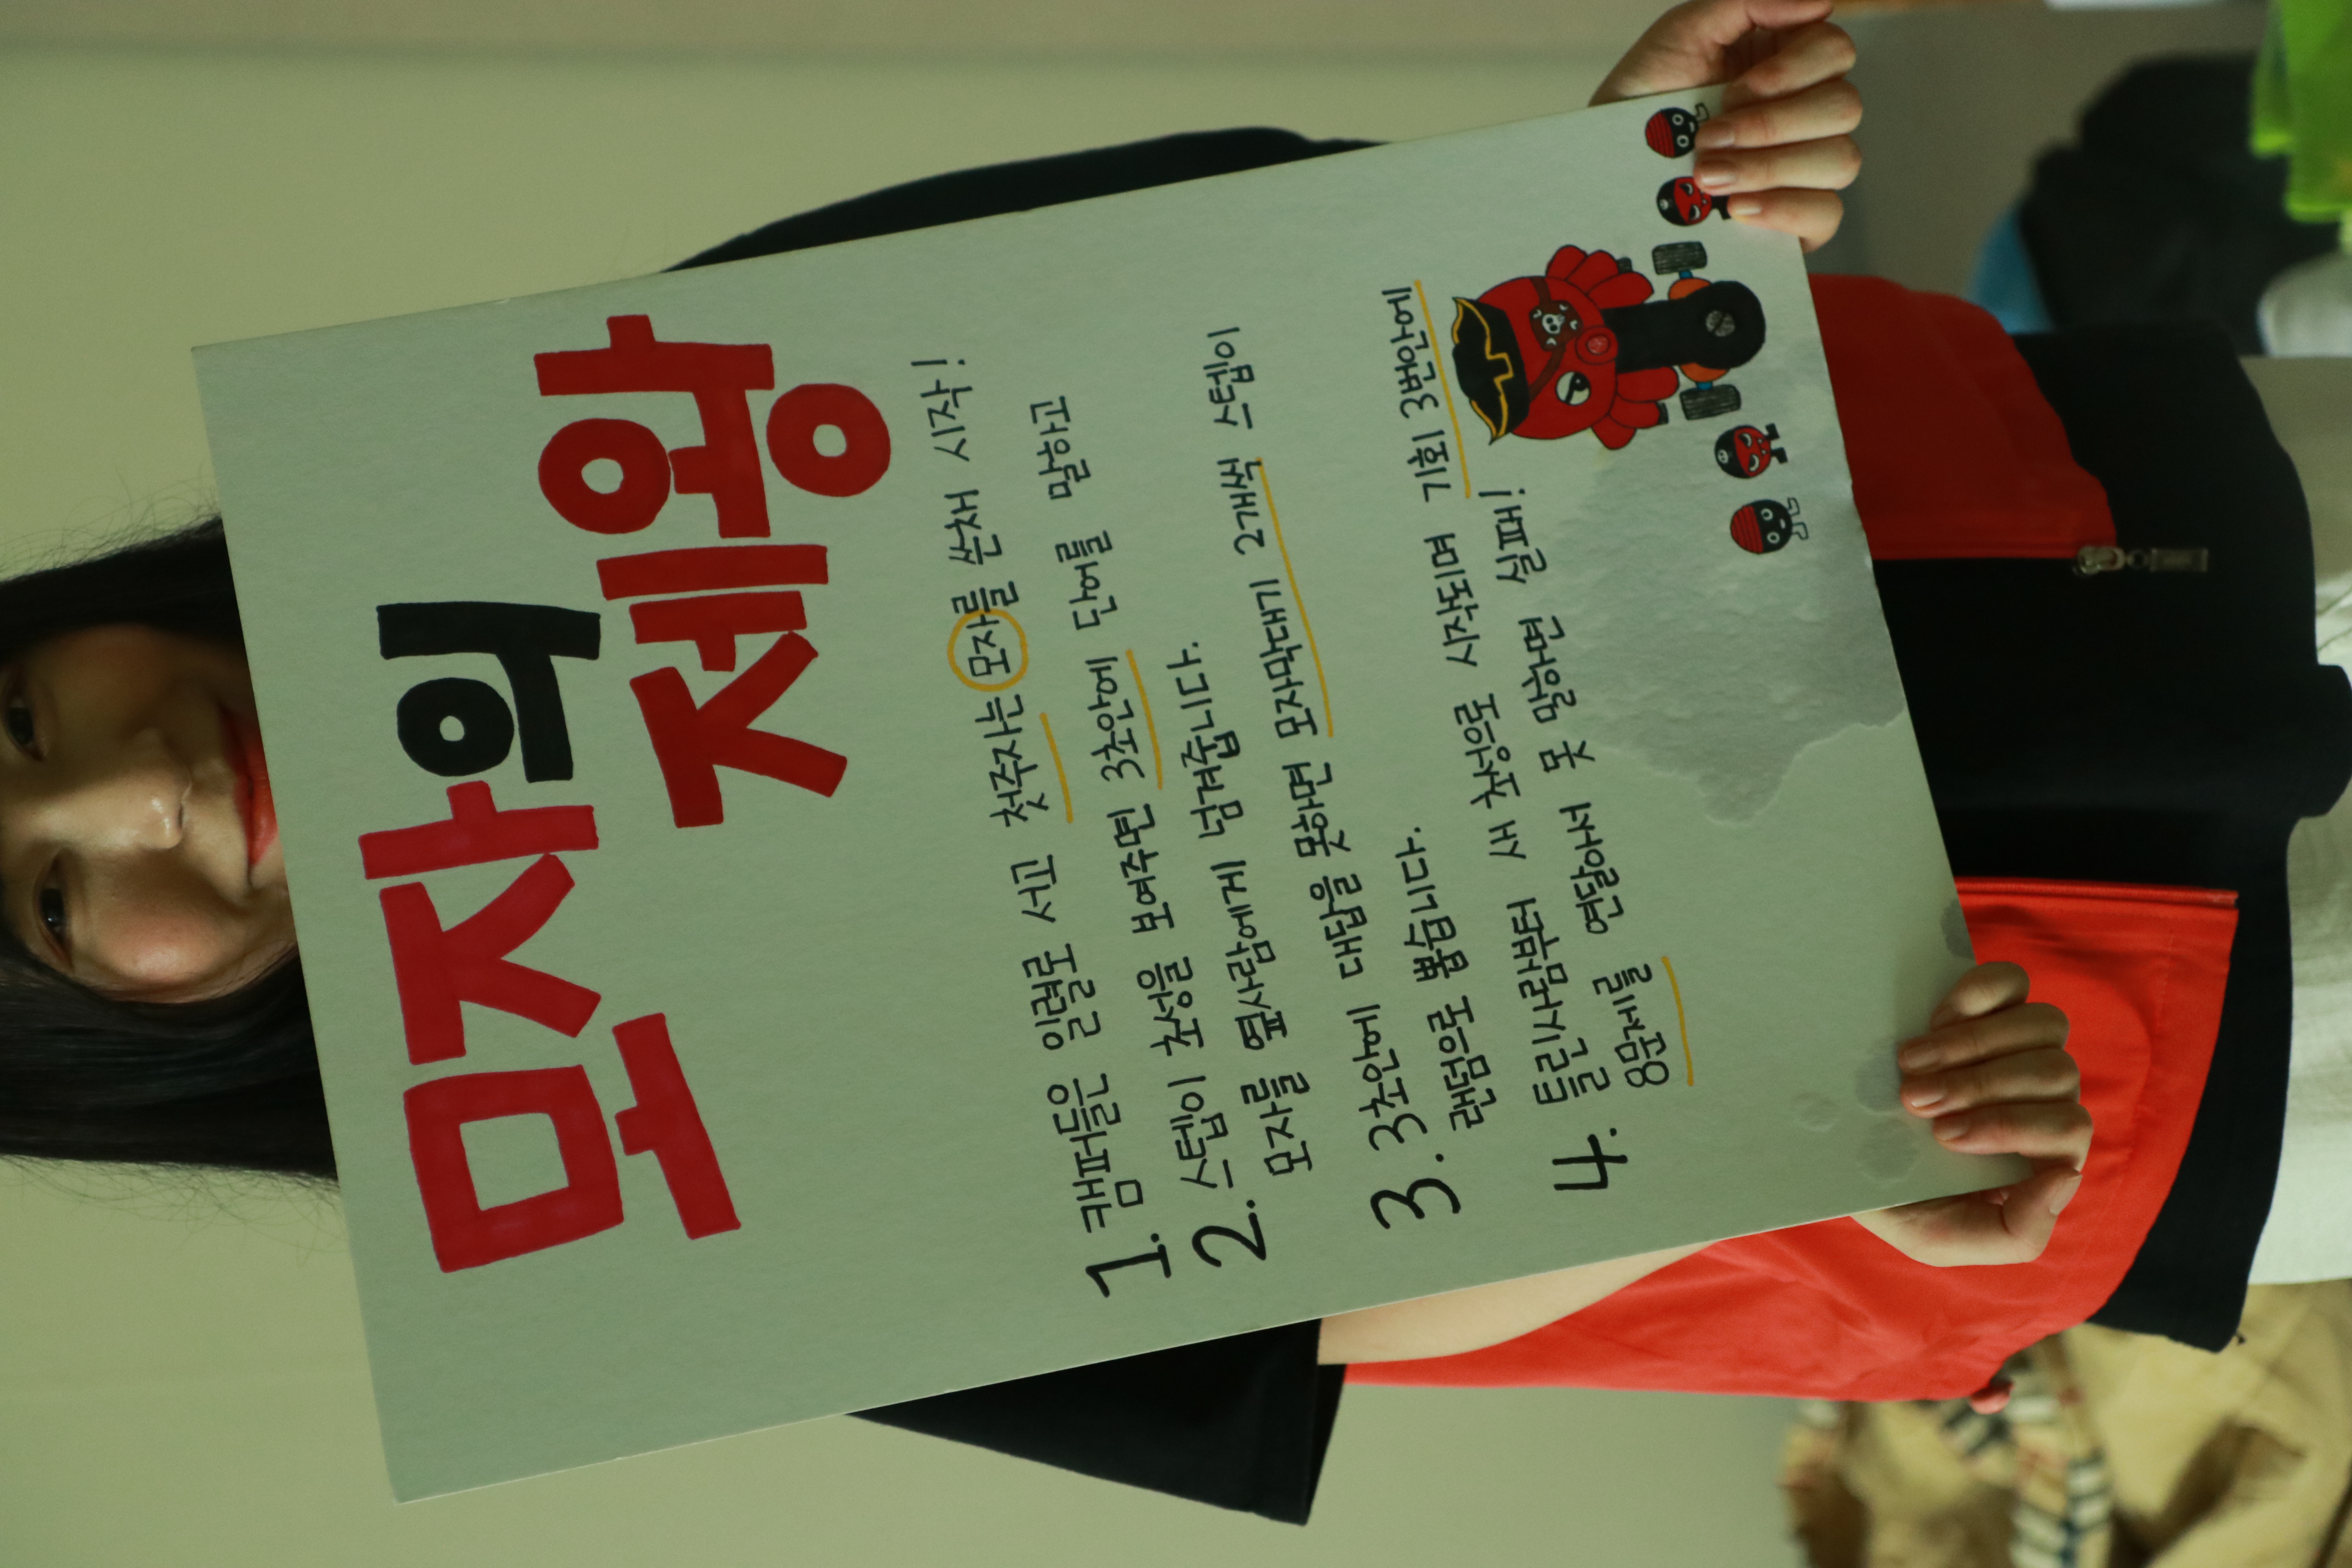 모자의
제왕
1. 캠퍼들은 일렬로 서고 첫주자는 모자를 쓴채 시작!
스텝이 초성을 보여주면 3초안에 단어를 말하고
2. 모자를 옆사람에게 넘겨줍니다.
3초안에 대답을 못하면 모자막대기 2개씩 스텝이
3. 랜덤으로 뽑습니다.
틀린사람부터 새 초성으로 시작되며 기회 3번안에
4. 8문제를 연달아서 못 말하면 실패!